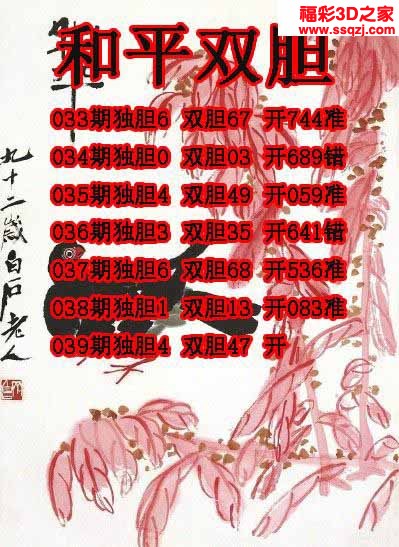 福彩3D之家
www.ssqzj.com
和平双胆
033期独胆6 双胆67 开744准
034期独胆0 双胆03 开689错
035期独胆4 双胆49 开059准
036期独胆3 双胆35 开641错
037期独胆6 双胆68 开536准
038期独胆1 双胆13 开083准
039期独胆4 双胆47 开
九十二岁白石老人